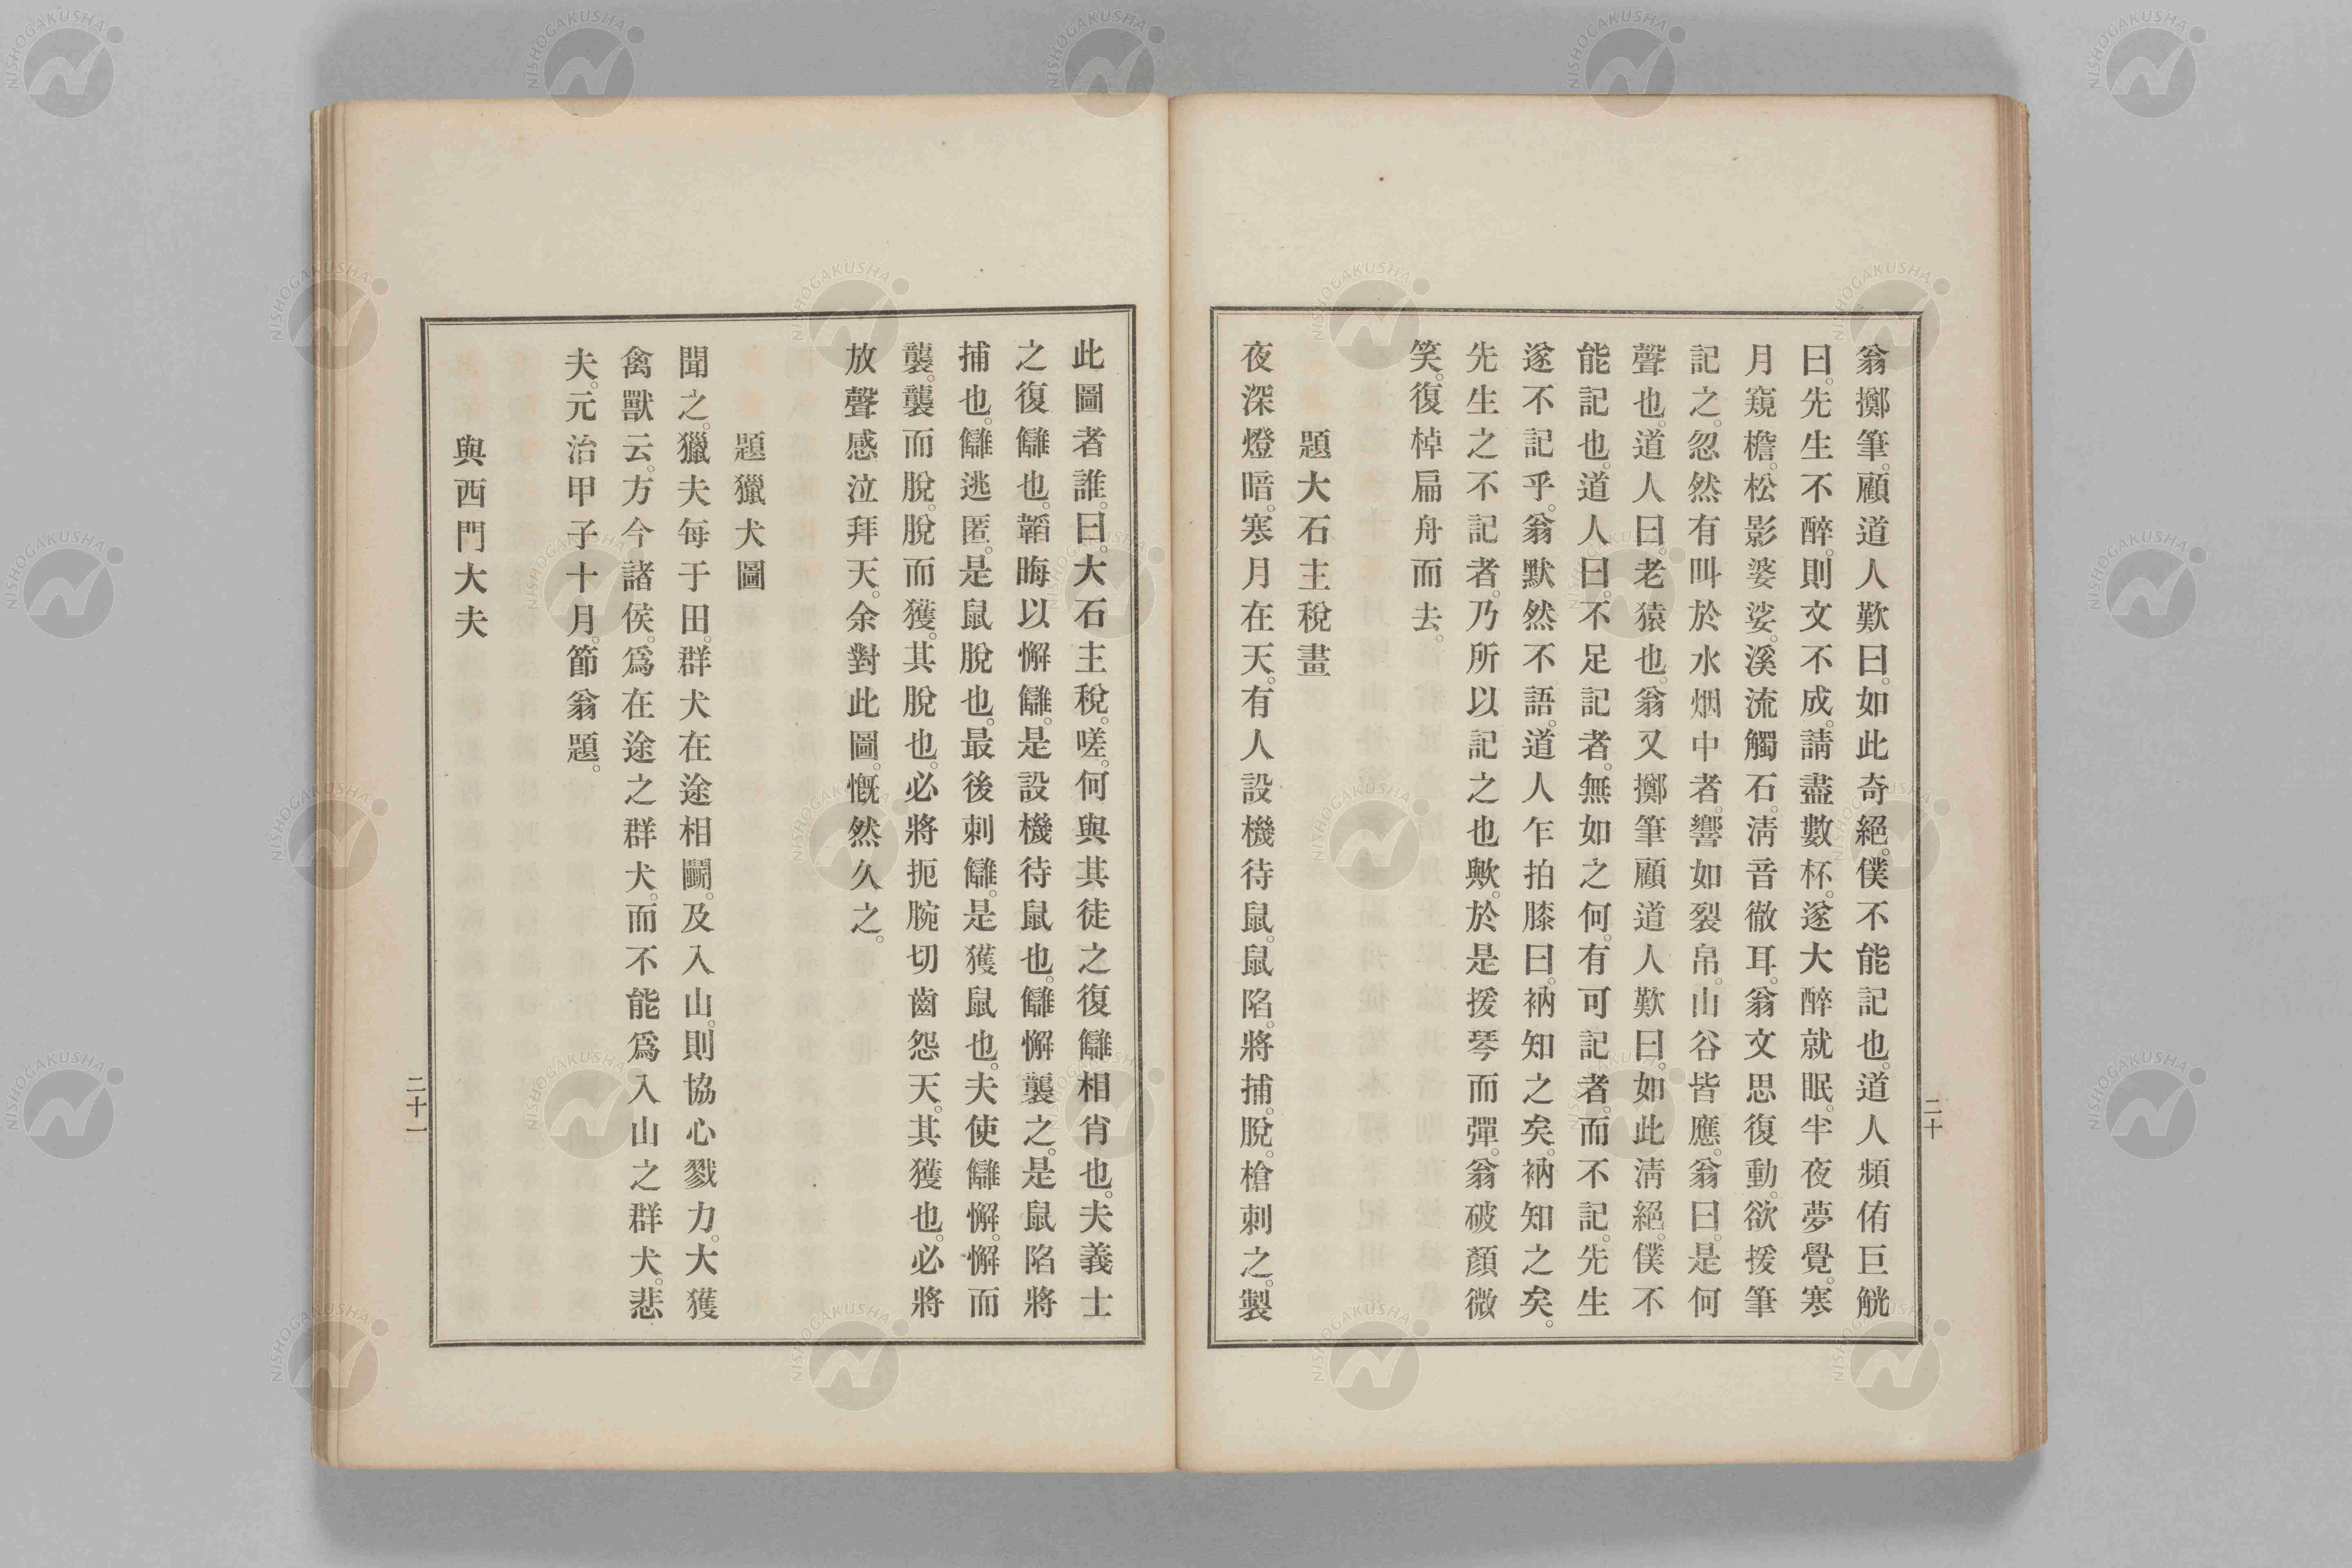 翁擲筆。顧道人歎曰。如此奇絕。僕不能記也。道人頻侑巨觥
曰。先生不醉。則文不成。請盡數杯。遂大醉就眠。半夜夢覺。寒
月窺檐。松影婆娑。溪流觸石。淸音徹耳。翁文思復動。欲援筆
記之。忽然有叫於水烟中者。響如裂帛。山谷皆應。翁曰。是何
聲也。道人曰。老猿也。翁又擲筆顧道人歎曰。如此淸絕。僕不
能記也。道人曰。不足記者。無如之何。有可記者。而不記。先生
遂不記乎。翁默然不語。道人乍拍膝曰。衲知之矣。衲知之矣。
先生之不記者。乃所以記之也歟。於是援琴而彈。翁破顏微
笑。復棹扁舟而去。
題大石主稅畫
夜深燈暗。寒月在天。有人設機待鼠。鼠陷。將捕。脫。槍刺之。製
二十
此圖者誰。曰。大石主稅。嗟。何與其徒之復讎相肖也。夫義士
之復讎也。韜晦以懈讎。是設機待鼠也。讎懈襲之。是鼠陷將
捕也。讎逃匿。是鼠脫也。最後刺讎。是獲鼠也。夫使讎懈。懈而
襲。襲而脫。脫而獲。其脫也。必將扼腕切齒怨天。其獲也。必將
放聲感泣拜天。余對此圖。慨然久之。
題獵犬圖
聞之。獵夫每于田。群犬在途相鬪。及入山。則協心戮力。大獲
禽獸云。方今諸侯。爲在途之群犬。而不能爲入山之群犬。悲
夫。元治甲子十月。節翁題。
與西門大夫
二十一
NISHOGAKUSHA